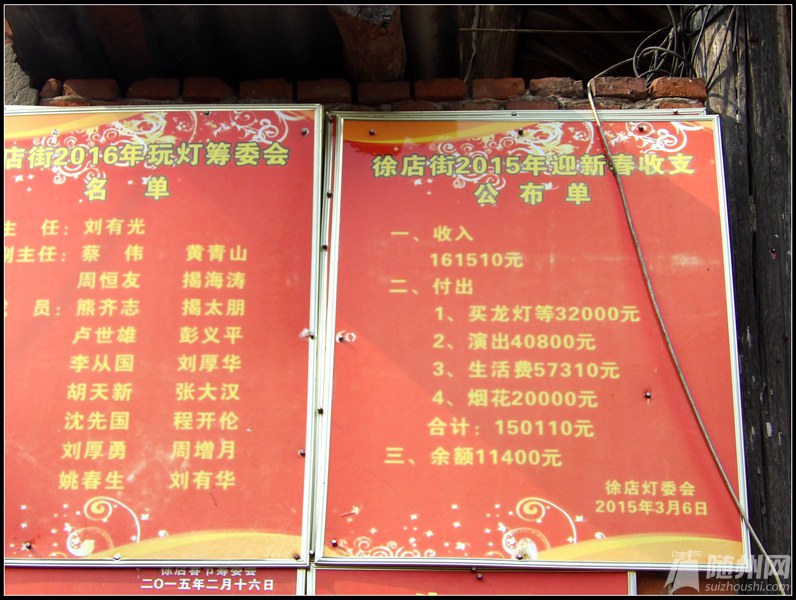 店街2016年玩灯筹委会
名 单
主 任：刘有光
副主任：蔡 伟 黄青山
周恒友 揭海涛
员：熊齐志 揭太朋
卢世雄 彭义平
李从国 刘厚华
胡天新 张大汉
沈先国 程开伦
刘厚勇 周增月
姚春生 刘有华
徐店街2015年迎新春收支
公 布 单
一、收入
161510元
二、付出
1、买龙灯等32000元
2、演出40800元
3、生活费57310元
4、烟花20000元
合计：150110元
三、余额11400元
徐店灯委会
2015年3月6日
徐店春节筹委会
二〇一五年二月十六日
随州网
suizhoushi.com